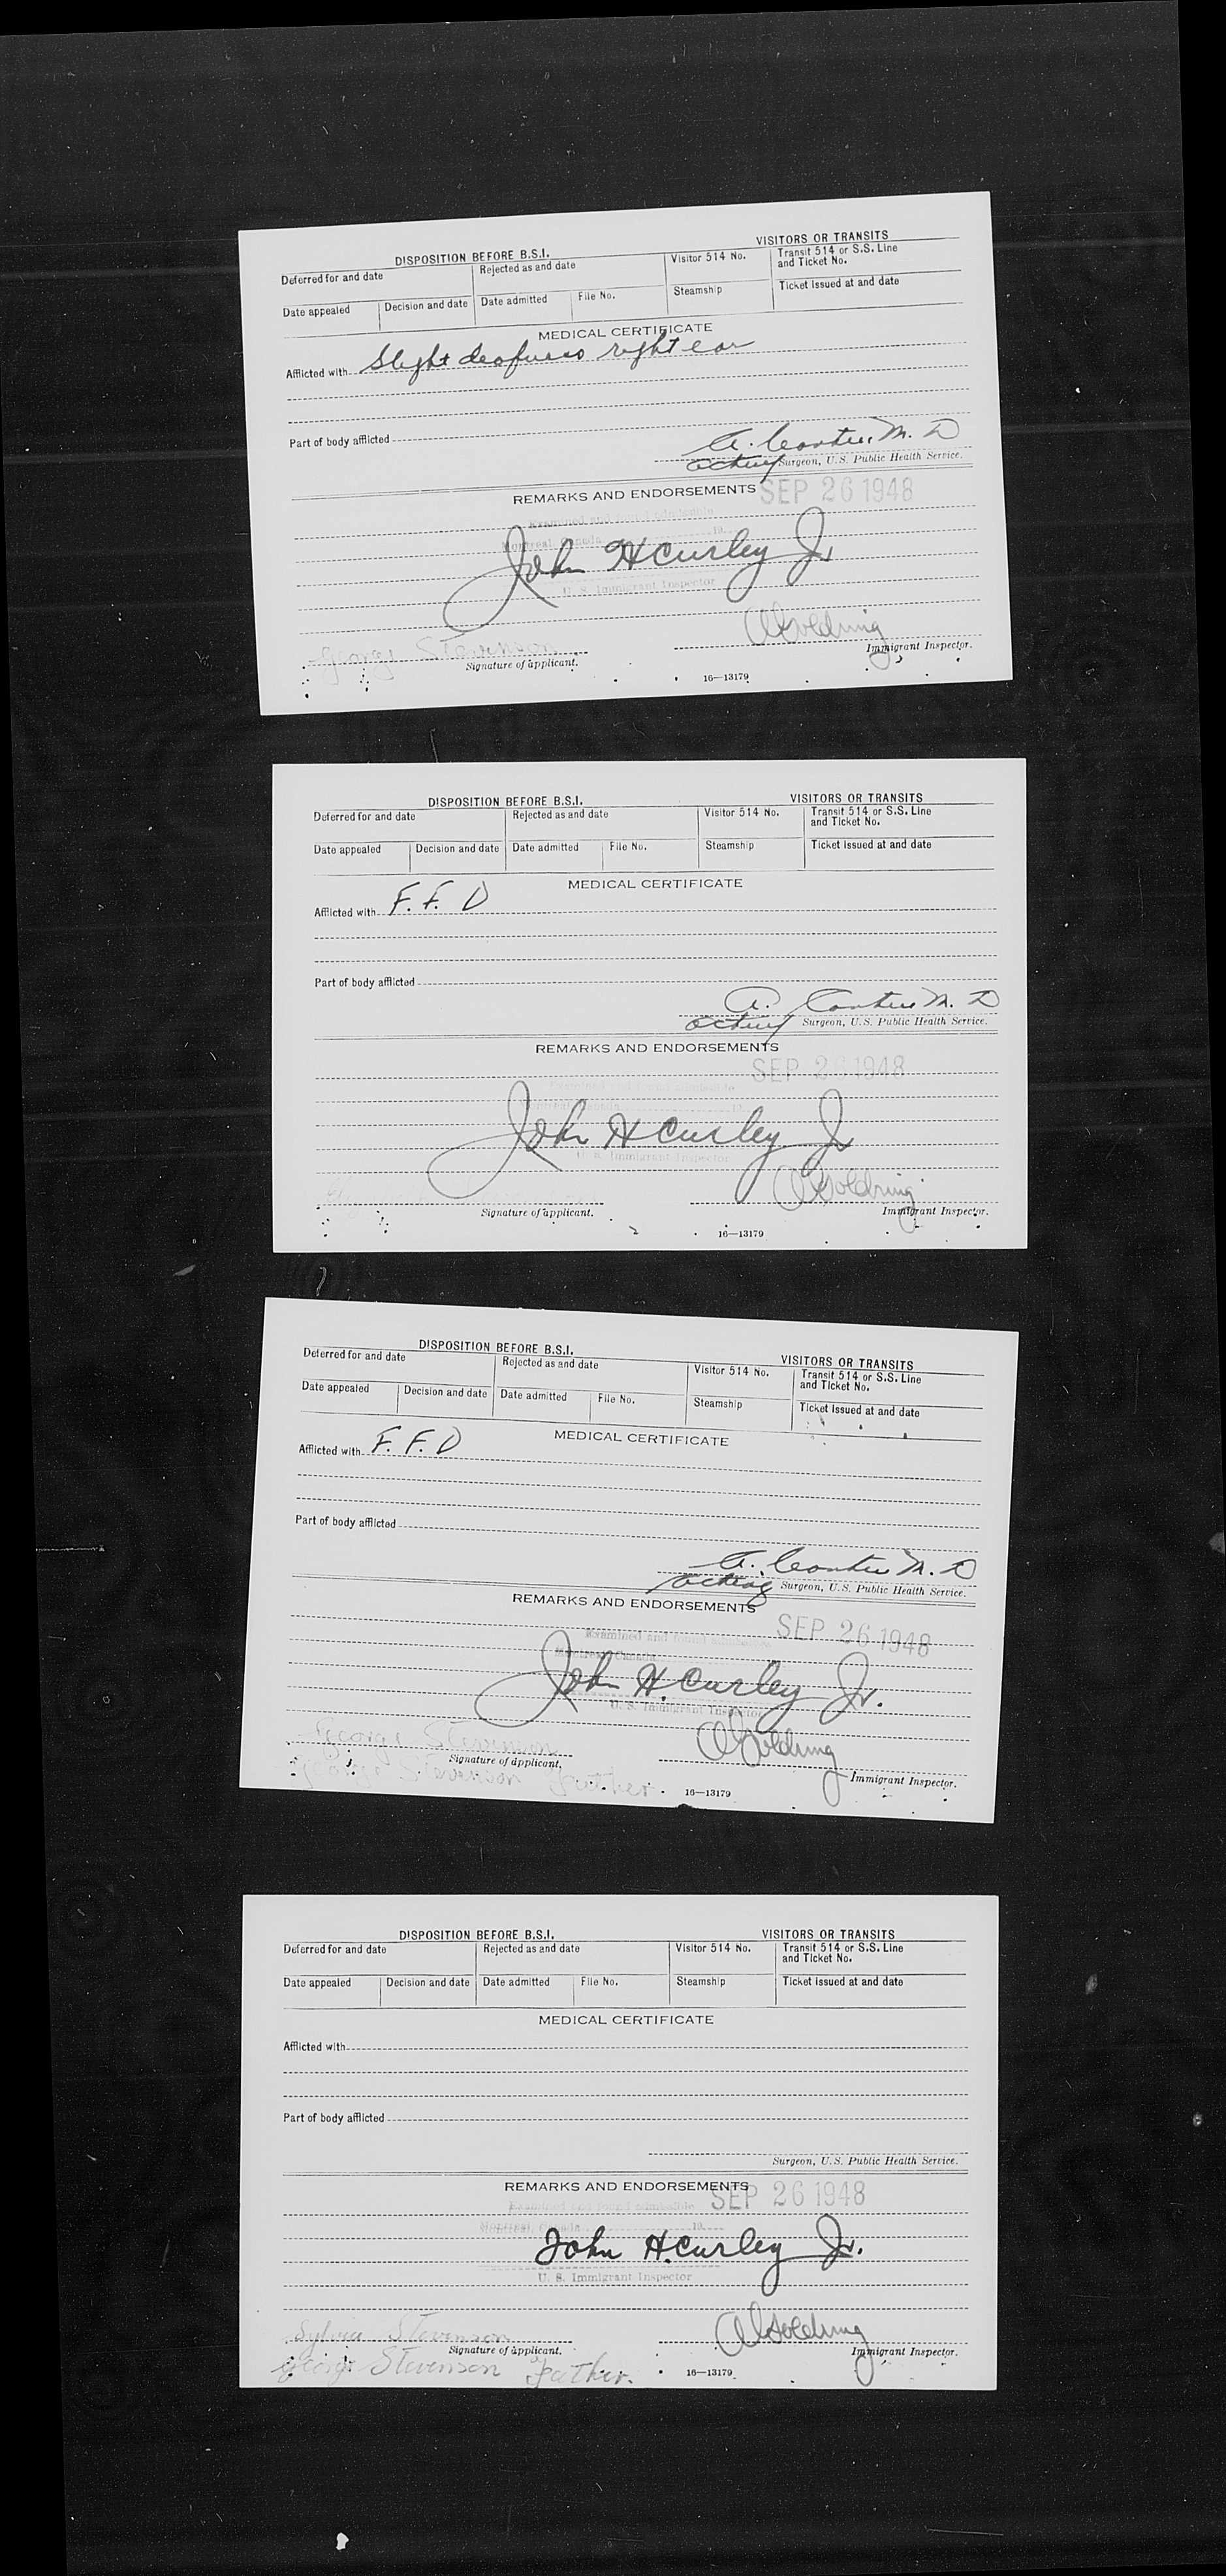 DISPOSITION BEFORE B.S.I. VISITORS OR TRANSITS
Deferred for and date Rejected as and date Visitor 514 No. Transit 514 or S.S. Line and Ticket No.
Date appealed Decision and date Date admitted File No. Steamship Ticket issued at and date
MEDICAL CERTIFICATE
Afflicted with Slight deafness right ear
Part of body afflicted
A. M. D
acting Surgeon, U.S. Public Health Service.
REMARKS AND ENDORSEMENTS SEP 26 1948
Examined and found admissible
Montreal, Canada 19
John H Curley Jr
U. S. Immigrant Inspector
George Stevenson
Signature of applicant. Immigrant Inspector.
16—13179
DISPOSITION BEFORE B.S.I. VISITORS OR TRANSITS
Deferred for and date Rejected as and date Visitor 514 No. Transit 514 or S.S. Line and Ticket No.
Date appealed Decision and date Date admitted File No. Steamship Ticket issued at and date
MEDICAL CERTIFICATE
Afflicted with F. F. D
Part of body afflicted
A. M. D
acting Surgeon, U.S. Public Health Service.
REMARKS AND ENDORSEMENTS
SEP 26 1948
Examined and found admissible
Montreal, Canada 19
John H Curley Jr
U. S. Immigrant Inspector
Signature of applicant. Immigrant Inspector.
16—13179
DISPOSITION BEFORE B.S.I. VISITORS OR TRANSITS
Deferred for and date Rejected as and date Visitor 514 No. Transit 514 or S.S. Line and Ticket No.
Date appealed Decision and date Date admitted File No. Steamship Ticket issued at and date
MEDICAL CERTIFICATE
Afflicted with F. F. D
Part of body afflicted
A. M. D
acting Surgeon, U.S. Public Health Service.
REMARKS AND ENDORSEMENTS SEP 26 1948
Examined and found admissible
Montreal, Canada
John H. Curley Jr.
U. S. Immigrant Inspector
George Stevenson
Signature of applicant. Immigrant Inspector.
George Stevenson father.
16—13179
DISPOSITION BEFORE B.S.I. VISITORS OR TRANSITS
Deferred for and date Rejected as and date Visitor 514 No. Transit 514 or S.S. Line and Ticket No.
Date appealed Decision and date Date admitted File No. Steamship Ticket issued at and date
MEDICAL CERTIFICATE
Afflicted with
Part of body afflicted
Surgeon, U.S. Public Health Service.
REMARKS AND ENDORSEMENTS SEP 26 1948
Examined and found admissible
Montreal, Canada 19
John H. Curley Jr.
U. S. Immigrant Inspector
Sylvia Stevenson
Signature of applicant. Immigrant Inspector.
George Stevenson father.
16—13179